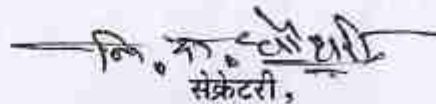 नि. रा. चौधरी
सेक्रेटरी,